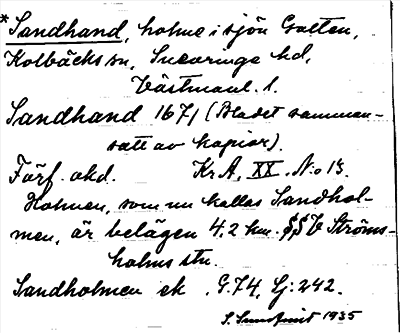 *Sandhand, holme i sjön Gatten,
Kolbäcks sn, Snevringe hd,
Västmanl. l.
Sandhand 1671 (Bladet samman-
satt av kopior).
Förf. okd. Kr.A, XX. N:o 13.
Holmen, som nu kallas Sandhol-
men, är belägen 4,2 km. Ströms-
holms stn.
Sandholmen ek. G.74, Lj:242.
S. 1935